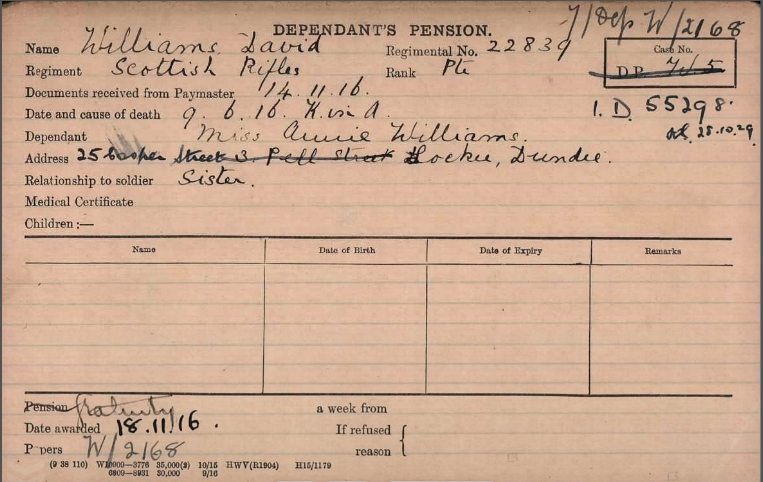 7/Dep W/2168
DEPENDANT'S PENSION.
Name Williams, David Regimental No. 22839
Case No.
D.P.
Regiment Scottish Rifles Rank Pte
Documents received from Paymaster 14.11.16.
1.D. 55298.
28.10.29.
Date and cause of death 9.6.16. K in A.
Dependant Miss Annie Williams.
Address 25 Street 3. Pell Street Lochee, Dundee.
Relationship to soldier Sister.
Medical Certificate
Children :—
Name Date of Birth Date of Expiry Remarks
Pension Gratuity a week from
Date awarded 18.11/16. If refused
Papers W/2168 reason
(9 38 110) W10909—3776 35,000(9) 10/15 HWV(R1904) H15/1179
6809—8931 30,000 9/16